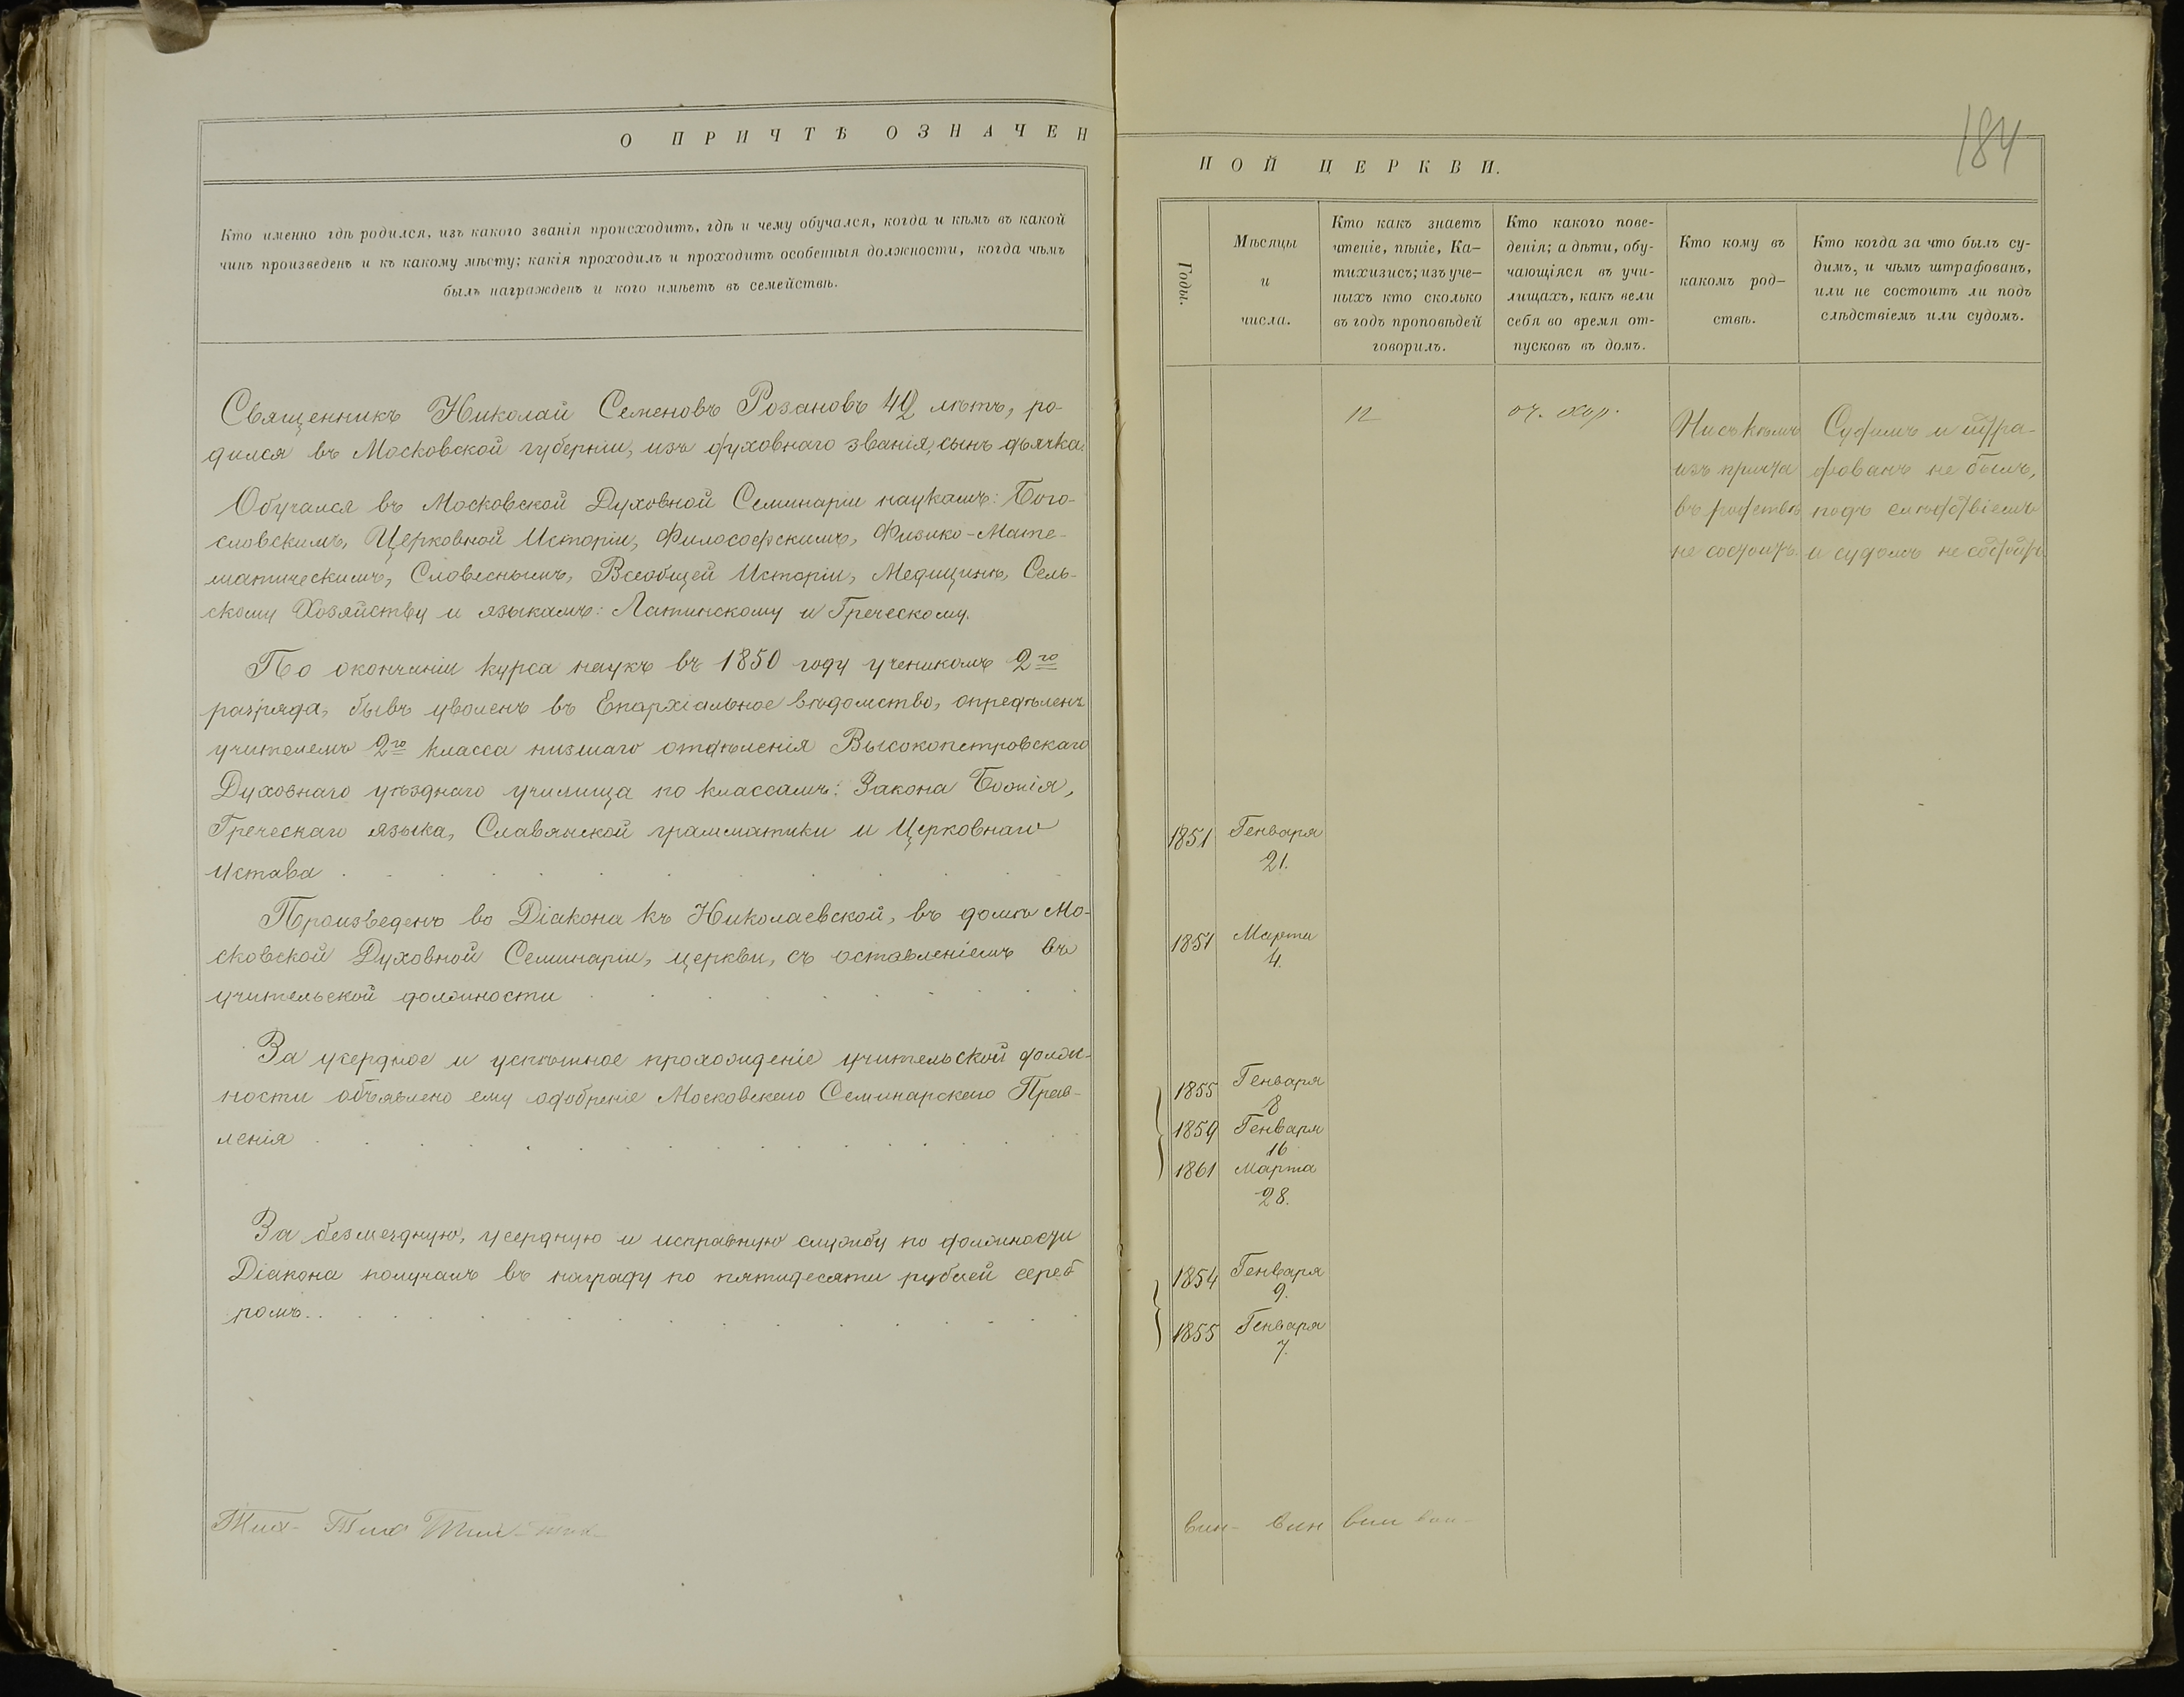 О ПРИЧТѢ ОЗНАЧЕН
Кто именно гдѣ родился, изъ какого званія происходитъ, гдѣ и чему обучался, когда и кѣмъ въ какой
чинъ произведенъ и къ какому мѣсту; какія проходилъ и проходитъ особенныя должности, когда чѣмъ
былъ награжденъ и кого имѣетъ въ семействѣ.
Священникъ Николай Семеновъ Розановъ 42 лѣтъ, ро-
дился въ Московской губерніи, изъ духовнаго званія, сынъ дьячка.
Обучался въ Московской Духовной Семинаріи наукамъ: Бого-
словскимъ, Церковной Исторіи, Философскимъ, Физико-Мате-
матическимъ, Словеснымъ, Всеобщей Исторіи, Медицинѣ, Сель-
скому Хозяйству и языкамъ: Латинскому и Греческому.
По окончаніи курса наукъ въ 1850 году ученикомъ 2го
разряда, бывъ уволенъ въ Епархіальное вѣдомство, опредѣленъ
учителемъ 2го класса низшаго отдѣленія Высокопетровскаго
Духовнаго уѣзднаго училища по классамъ: Закона Божія,
Греческаго языка, Славянской грамматики и Церковнаго
Устава
Произведенъ во Діакона къ Николаевской, въ домѣ Мо-
сковской Духовной Семинаріи, церкви, съ оставленіемъ въ
учительской должности
За усердное и успѣшное прохожденіе учительской долж-
ности объявлено ему одобреніе Московскаго Семинарскаго Прав-
ленія
За безмездную, усердную и исправную службу по должности
Діакона получалъ въ награду по пятидесяти рублей сереб
ромъ.
184
НОЙ ЦЕРКВИ.
Годы.
Мѣсяцы
и
числа.
Кто какъ знаетъ
чтеніе, пѣніе, Ка-
тихизисъ; изъ уче-
ныхъ кто сколько
въ годъ проповѣдей
говорилъ.
Кто какого пове-
денія; а дѣти, обу-
чающіяся въ учи-
лищахъ, какъ вели
себя во время от-
пусковъ въ домъ.
Кто кому въ
какомъ род-
ствѣ.
Кто когда за что былъ су-
димъ, и чѣмъ штрафованъ,
или не состоитъ ли подъ
слѣдствіемъ или судомъ.
12
оч. хор.
Ни съ кѣмъ
изъ причта
въ родствѣ
не состоитъ.
Судимъ и штра-
фованъ не былъ,
подъ слѣдствіемъ
и судомъ не состоитъ
1851 Генваря
21.
1851 Марта
4.
1855 Генваря
8
1859 Генваря
16
1861 Марта
28.
1854 Генваря
9.
1855 Генваря
7.